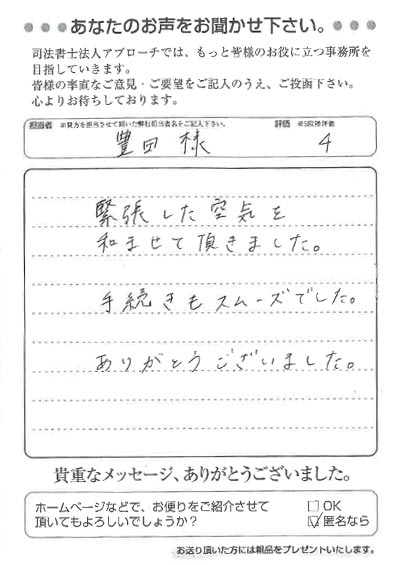 あなたのお声をお聞かせ下さい。
司法書士法人アプローチでは、もっと皆様のお役に立つ事務所を
目指していきます。
皆様の率直なご意見・ご要望をご記入のうえ、ご投函下さい。
心よりお待ちしております。
担当者 ※貴方を担当させて頂いた弊社担当者名をご記入下さい。 評価 ※5段階評価
豊田 様 4
緊張した空気を
和ませて頂きました。
手続きもスムーズでした。
ありがとうございました。
貴重なメッセージ、ありがとうございました。
ホームページなどで、お便りをご紹介させて
頂いてもよろしいでしょうか?
□ OK
☑ 匿名なら
お送り頂いた方には粗品をプレゼントいたします。